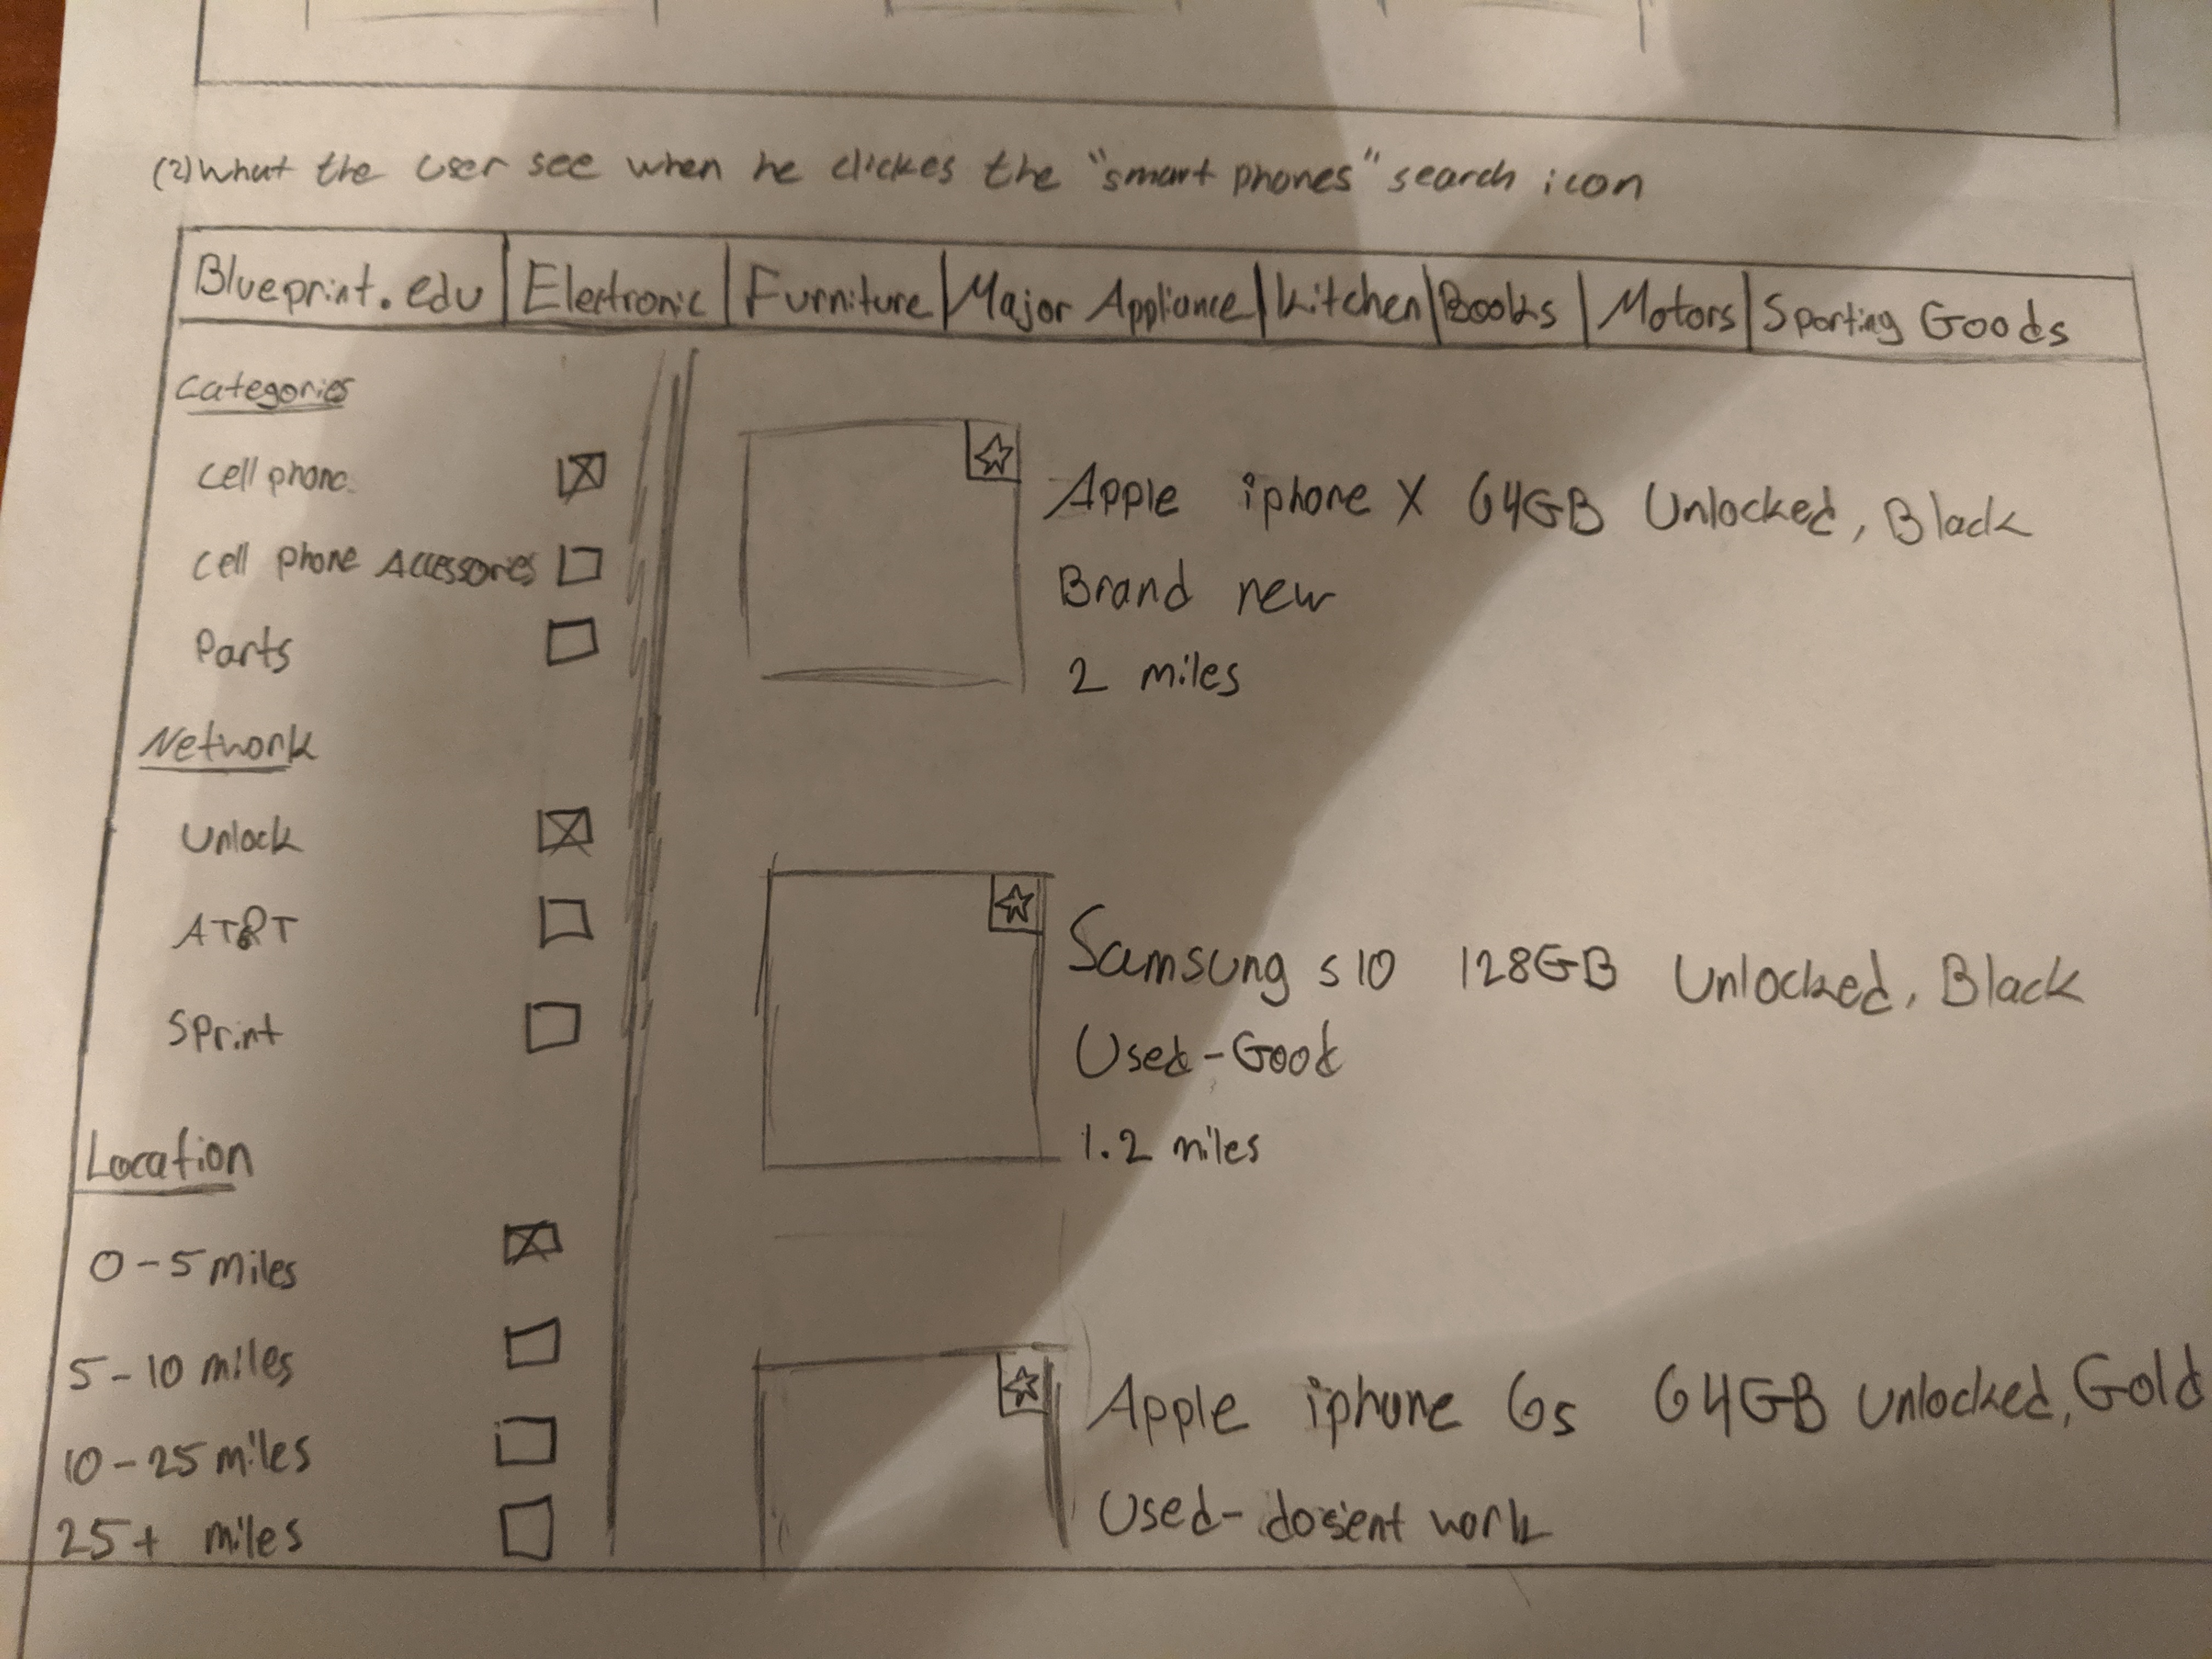 (2) What the user see when he clickes the "smart phones" search icon
Blueprint.edu | Electronic | Furniture | Major Appliance | Kitchen | Books | Motors | Sporting Goods
Categories
Cell phone
Cell phone Accessories
Parts
Network
Unlock
AT&T
Sprint
Location
0-5 miles
5-10 miles
10-25 miles
25+ miles
Apple iphone X 64GB Unlocked, Black
Brand new
2 miles
Samsung s10 128GB Unlocked, Black
Used-Good
1.2 miles
Apple iphone 6s 64GB Unlocked, Gold
Used- dosent work